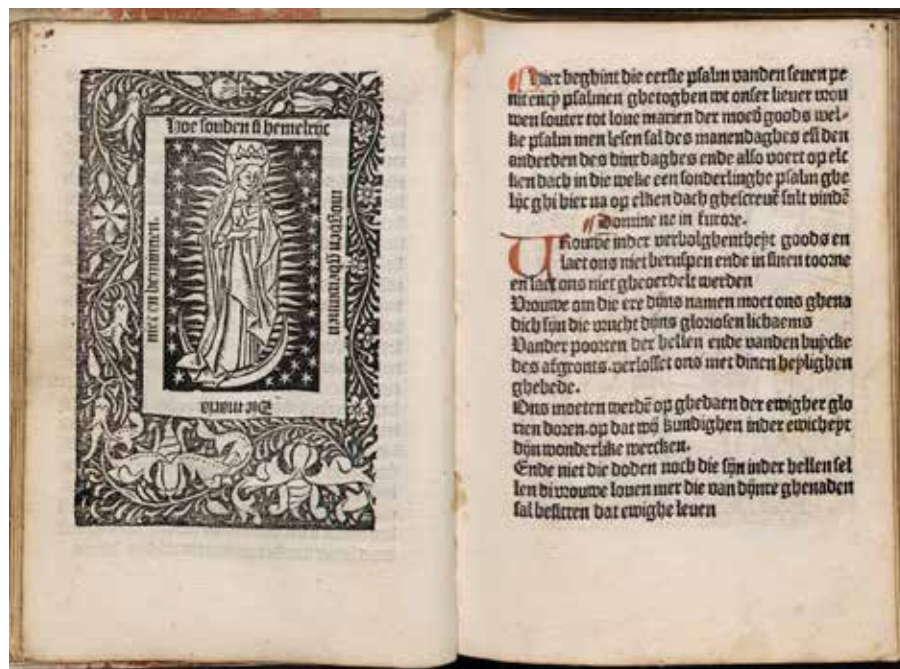 Hoe souden si hemelrijc
moghen ghewinnen
Die maria
niet en beminnen.
Hier beghint die eerste psalm vanden seuen pe
nitencij psalmen ghetoghen wt onser lieuer vrou
wen souter tot loue marien der moed̄ goods wel-
ke psalm men lesen sal des manendaghes eñ den
anderden des dinxdaghes ende also voert op elc
ken dach in die weke een sonderlinghe psalm ghe
lijc ghi hier na op elken dach ghescreuē sult vindē
Domine ne in furore.
Vrouwe inder verbolghentheyt goods en
laet ons niet berispen ende in sinen toorne
en laet ons niet gheoerdelt werden
Vrouwe om die ere dijns namen moet ons ghena
dich sijn die vrucht dijns gloriosen lichaems
Vander poorten der hellen ende vanden buycke
des afgronts verlosset ons met dinen heylighen
ghebede.
Ons moeten werdē op ghedaen der ewigher glo
rien doren. op dat wij kundighen inder ewicheyt
dijn wonderlike wercken.
Ende niet die doden noch die sijn inder hellen sel
len di vrouwe louen mer die van dijnre ghenaden
sal besitten dat ewighe leuen